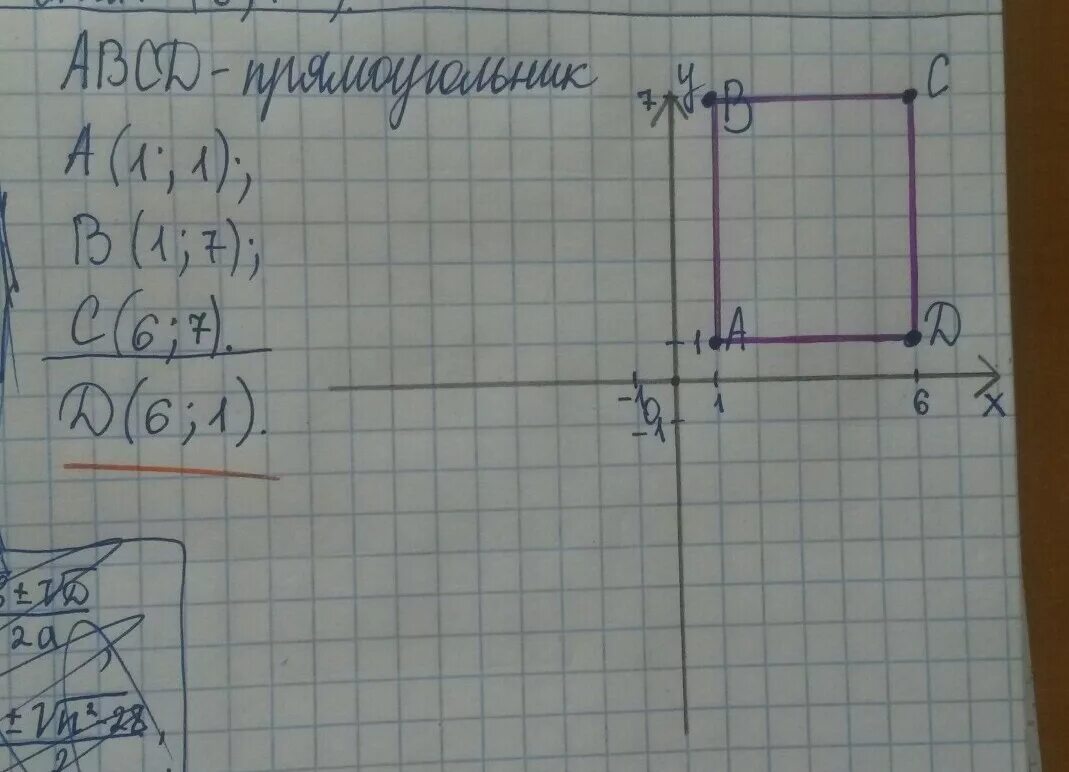 ABCD - прямоугольник
A (1; 1);
B (1; 7);
C (6; 7).
D (6; 1).
y
7
B
C
1
A
D
-1
0
1
6
x
-1
±√D
2a
±√
2